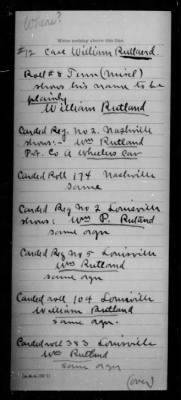 Where?
Write nothing above this line.
#12 Case William Rutland.
Roll #8 Tenn (Misel)
shows his name to be
plainly
William Rutland
Carded Reg. No 2. Nashville
shows:- Wm Rutland
Pvt. Co A Wheelers Cav
Carded Roll 174 Nashville
Same
Carded Reg No 2 Louisville
shows: Wm P. Rutland
same orgn
Carded Reg No 5 Louisville
Wm Rutland
same orgn
Carded roll 104 Louisville
William Rutland
same orgn.
Carded roll 383 Louisville
Wm Rutland
same orgn
(over)